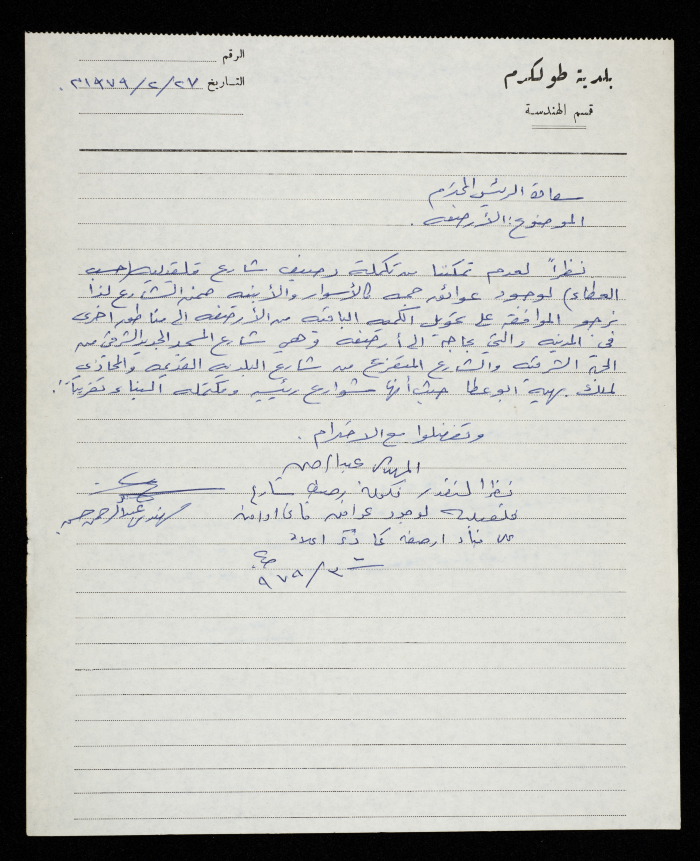 بلدية طولكرم
قسم الهندسة
الرقم
التاريخ ٢٧/٢/١٩٧٩م.
سعادة الرئيس المحترم
الموضوع: الأرصفه.
نظراً لعدم تمكننا من تكملة رصيف شارع قلقيليه (حسب
العطاء) لوجود عوائق ضمنه كالأسوار والأبنيه ضمن الشارع لذا
نرجو الموافقه على تحويل الكميه الباقيه من الأرصفه الى مناطق اخرى
في المدينه والتي بحاجة الى أرصفه وهي شارع المسجد الجديد الشرقي من
الجهة الشرقيه والشارع المتفرع من شارع البلديه القديمه والمحاذي
لملك بهية ابو عطا حيث أنها شوارع رئيسيه ومكتمله البناء تقريباً.
وتفضلوا مع الاحترام.
المهندس عبد الرحمن
نظرا لتعذر تكملة رصيف شارع
قلقيليه لوجود عوائق فاني اوافق
على بناء ارصفه كما ذكر اعلاه
مهندس عبد الرحمن حسين
٣/٩٧٩